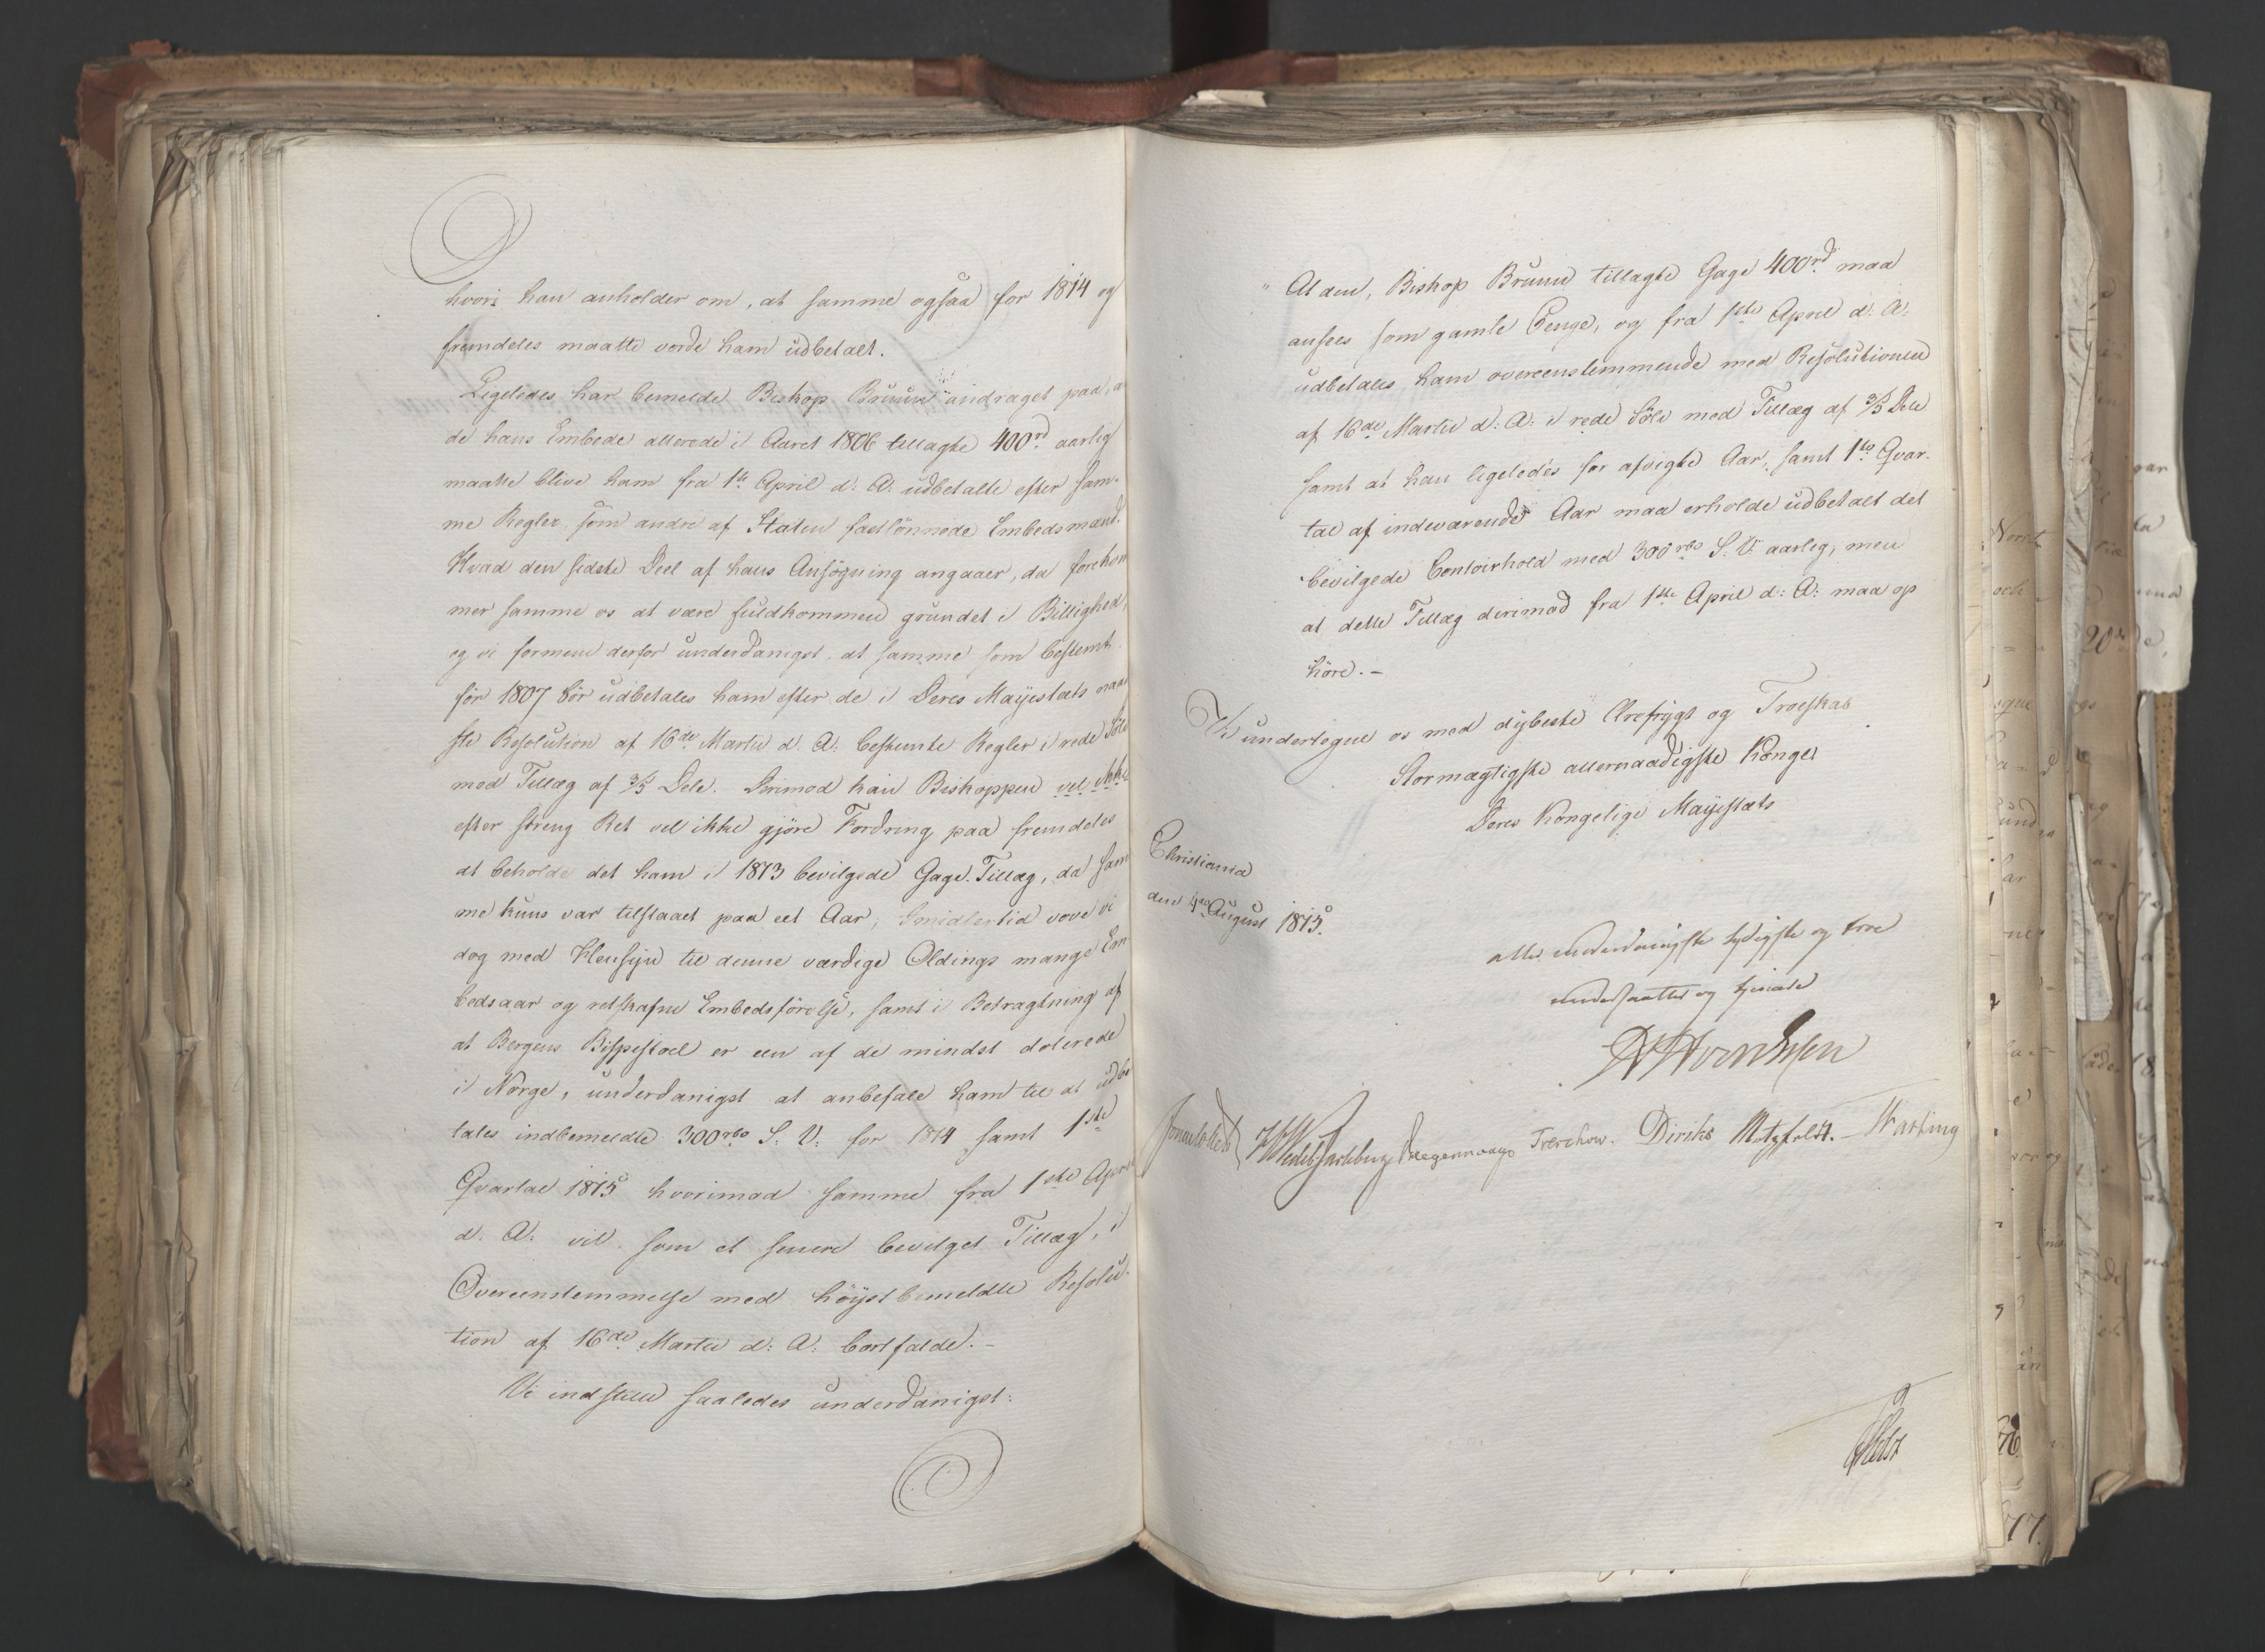 hvori han anholder om, at samme ogsaa for 1814 og
fremdeles maatte vorde ham udbetalt.
Ligeledes har bemeldte Biskop Bruun andraget paa, a
de hans Embede allerede i Aaret 1806 tillagte 400rd aarlig
maatte blive ham fra 1te April d: A: udbetalte efter sam-
me Regler som andre af Staten fastlönnede Embedsmænd.
Hvad den sidste Deel af hans Ansögning angaaer, da forekom
mer samme os at være fuldkommen grundet i Billighed,
og vi formene derfor underdanigst, at samme som bestemt
för 1807 bör udbetales ham efter de i Deres Mayestæts naa
ste Resolution af 16de Martii d. A: bestemte Regler i rede Sölv
med Tillæg af 3/5 Dele. Derimod kan Biskoppen vel ikke
efter streng Ret vel ikke gjöre Fordring paa fremdeles
at beholde det ham i 1813 bevilgede Gage-Tillæg, da sam
me kuns var tilstaaet paa eet Aar, Imidlertid vove vi
dog med Hensyn til denne værdige Oldings mange Em
bedsaar og retskafne Embedsförelse, samt i Betragtning af
at Bergens Bispestoel er een af de mindst dolerede
i Norge, underdanigst at anbefale ham til at udbe
tales indbemeldte 300 rbd S: V: for 1814 samt 1ste
Qvartal 1815 hvorimod samme fra 1ste April
d. A: vil som et senere bevilget Tillæg, i
Overeenstemmelse med höystbemeldte Resolu-
tion af 16de Martii d: A: bortfalde.-
Vi indstille saaledes underdanigst:
" At den, Biskop Bruun tillagte Gage 400rd maa
ansees som gamle Penge, og fra 1ste April d: A:
udbetales ham overeenstemmende med Resolutionen
af 16de Martii d: A: i rede Sölv med Tillæg af 3/5 Dele
samt at han ligeledes for afvigte Aar, samt 1ste Qvar-
tal af indeværende Aar maa erholde udbetalt det
bevilgede Contoirhold med 300 rbd S: V: aarlig, men
at dette Tillæg derimod fra 1ste April d: A: maa op
höre.-
Vi undertegne os med dybeste Ærefrygt og Troeskab
Stormægtigste allernaadigste Konge!
Deres Kongelige Mayestæts
Christiania
den August 1815.
allerunderdanigste lydigste og troe
undersaatter og tjenere
Sommerhielm Wedel Jarlsberg Hegermann Treschow. Diriks Motzfeldt. - Hasting
Holst